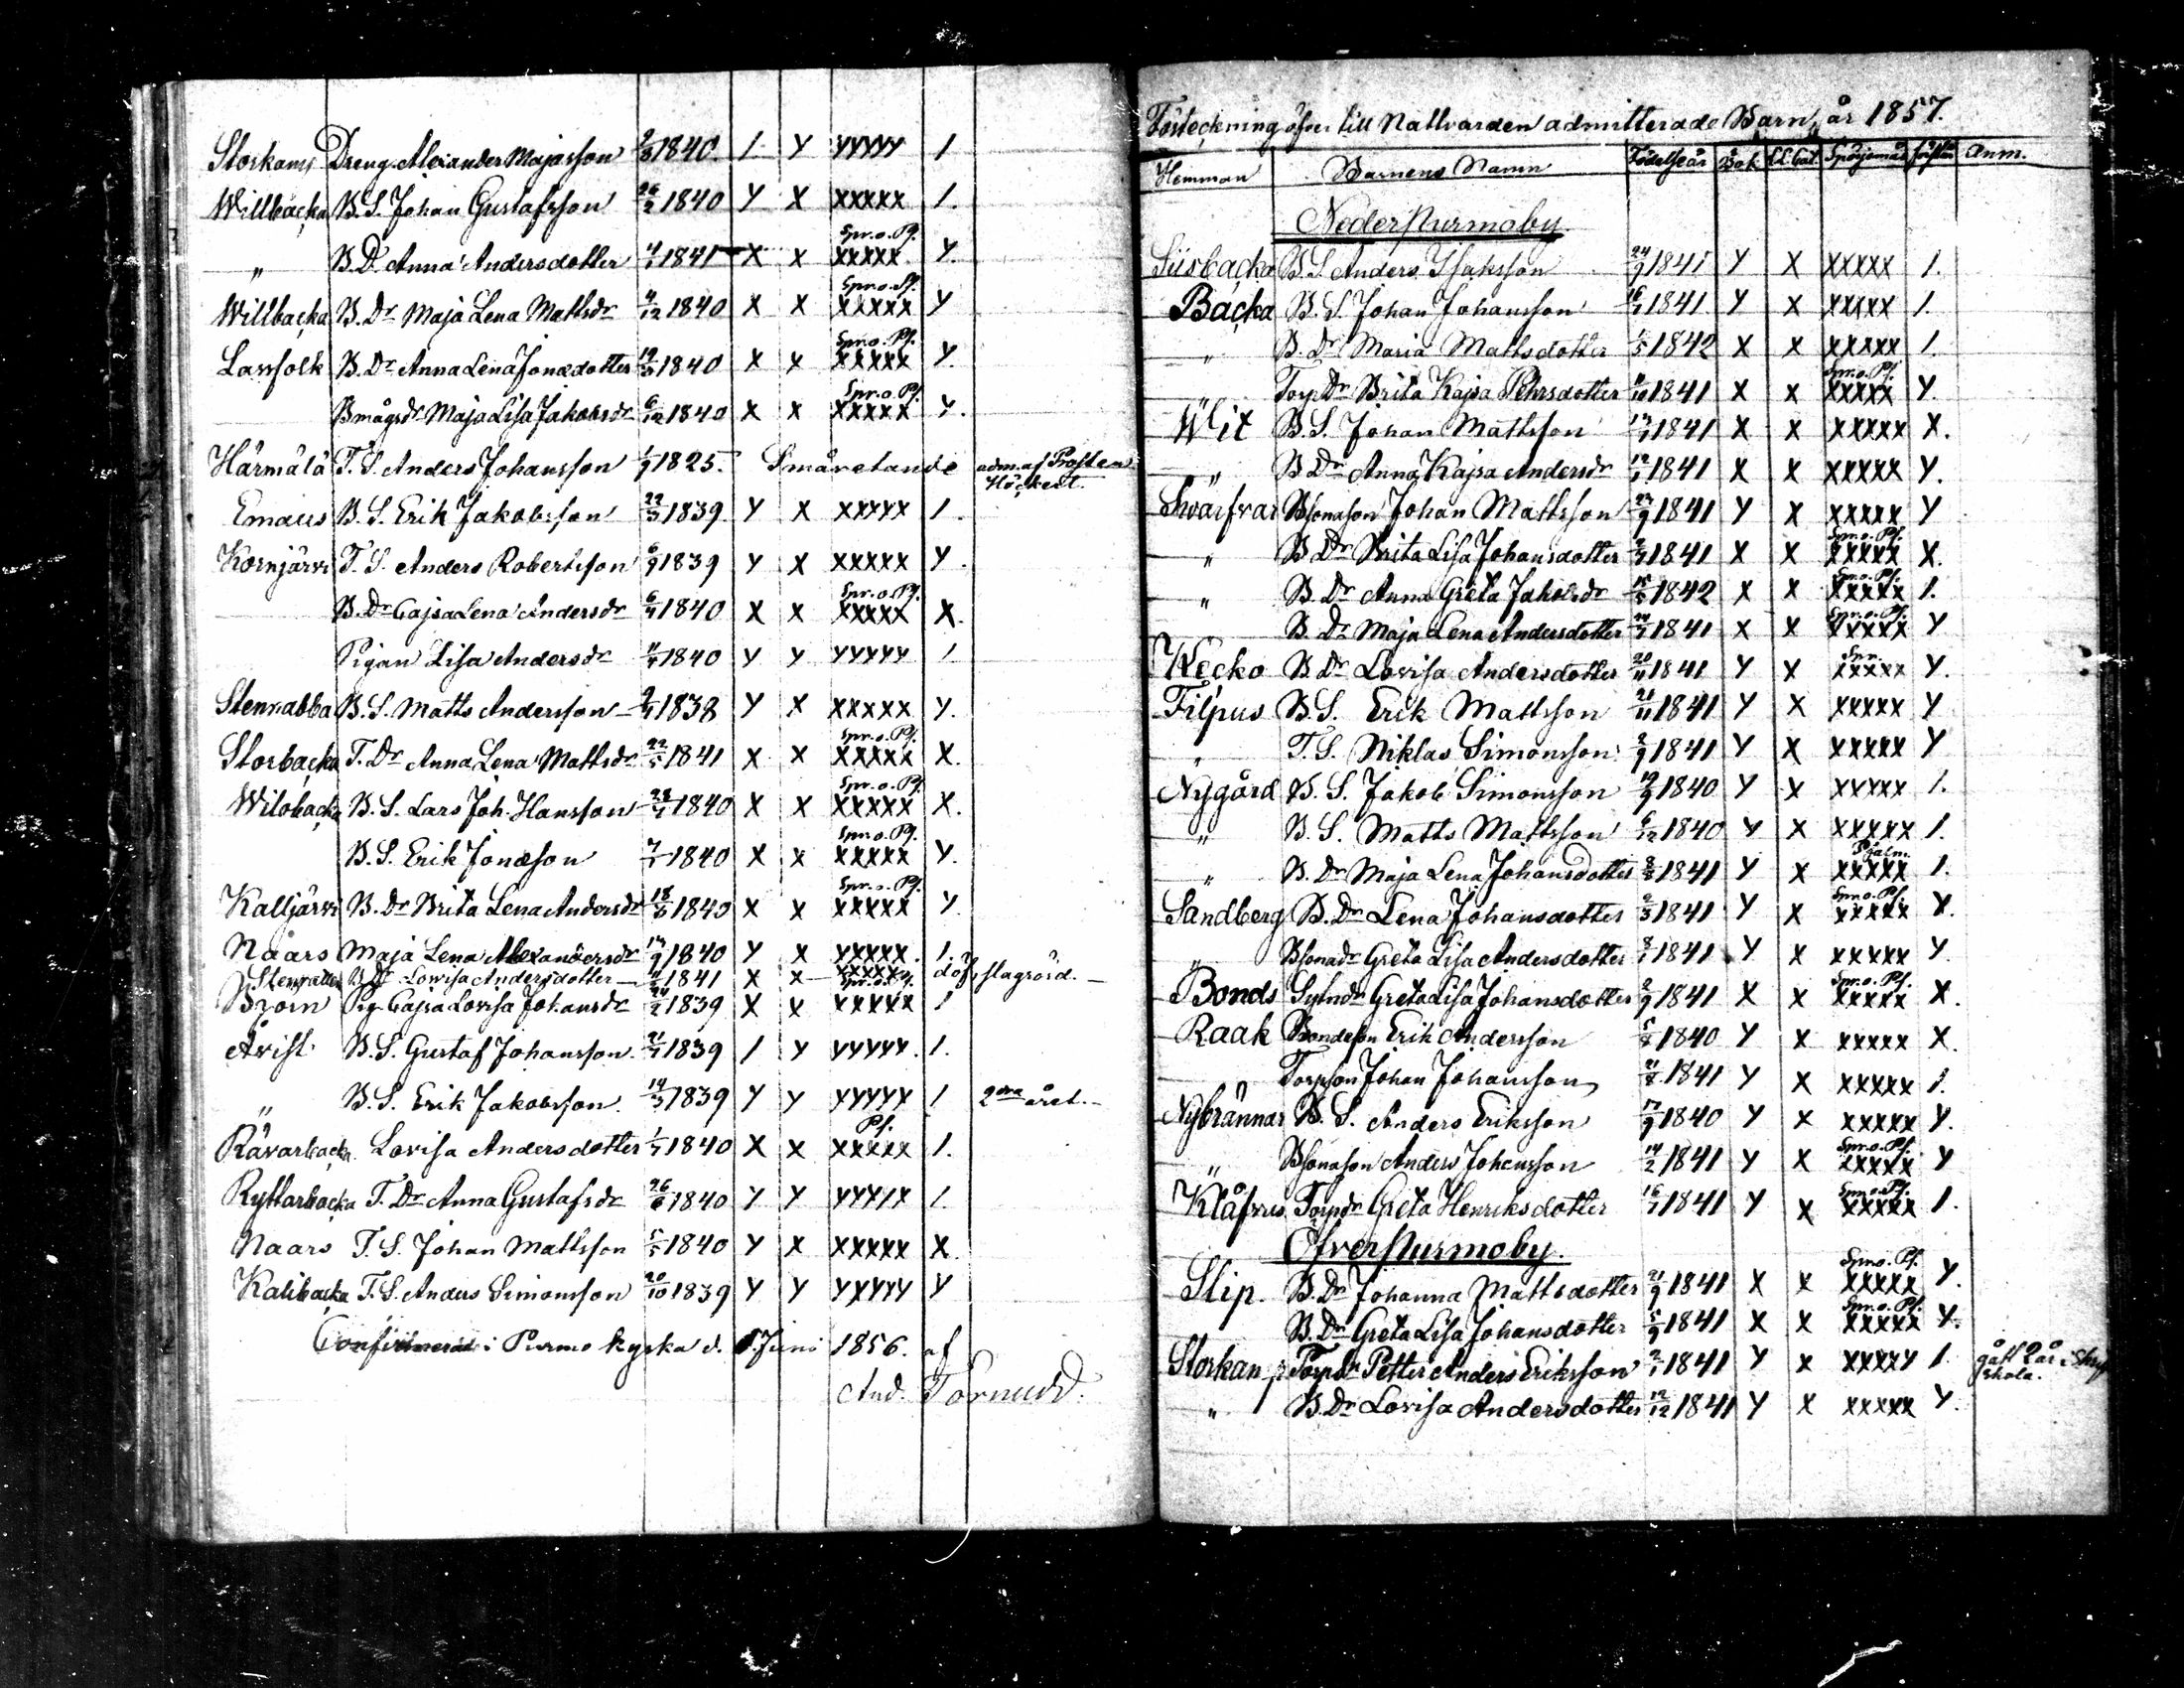 Storkamp Dreng Alexander Majasson 9/3 1840. / Y YYYYY /
Willbacka B. S. Johan Gustafsson 26/2 1840 Y X XXXXX /.
„ B. D. Anna Andersdotter 4/1 1841 X X Spr. o. Ps. XXXXX. Y.
Willbacka B. Dr Maja Lena Mattsdr 4/12 1840 X X Spr. o. Ps. XXXXX Y
Lassfolk B. Dr Anna Lena Jonædotter 1840 X X Spr. o. Ps. XXXXX Y.
Bmågsdr Maja Lisa Jakobsdr 6/12 1840 X X Spr. o. Ps. XXXXX Y.
Härmälä T. S. Anders Johansson 1/9 1825. adm. af Prosten
Höckert.
Emaus B. S. Erik Jakobsson 22/3 1839 Y X XXYYX /.
Kornjärvi T. S. Anders Robertsson 6/9 1839 Y X XXXXX Y.
B. Dr Cajsa Lena Andersdr 6/4 1840 X X Spr. o. Ps. XXXXX X.
Pigan Lisa Andersdr 1840 Y Y YYYYY /
Stennabba B. S. Matts Andersson 1838 Y X XXXXX Y.
Storbacka T. Dr Anna Lena Mattsdr 22/5 1841 X X Spr. o. Ps. XXXXX X.
Wilobacka B. S. Lars Joh. Hansson 1840 X X Spr. o. Ps. XXXXX X.
B. S. Erik Jonæson 7/1 1840 X X Spr. o. Ps. XXXXX Y.
Kalljärvi B. Dr Brita Lena Andersdr 1840 X X Spr. o. Ps. XXXXX Y.
Naars Maja Lena Alexandersdr 1840 Y X YXXXX. /.
B. Dr Lowisa Andersdotter 1841 X X XXXXX döf, slagrörd.
Björn Pig. Cajsa Lovisa Johansdr 24/2 1839 X X YXXXX /
Åvist B. S. Gustaf Johansson 1839 / Y YYYYY. /.
„ B. S. Erik Jakobsson. 14/3 1839 Y Y YYYYX / 2dra året.
Rävarbacka Lovisa Andersdotter 1840 X X Ps. XXXXX /.
Ryttarbacka T. Dr Anna Gustafsdr 26/6 1840 Y Y YYYYX /.
Naars T. S. Johan Mattsson 5/5 1840 Y X XXXXX X.
Kalibacka T. S. Anders Simonsson 20/10 1839 Y Y YXYYY Y
Confirmerade i Purmo kyrka d. Juni 1856. af
And. Törnudd.
Förteckning öfver till Nattvarden admitterade Barn, år 1857.
Hemman Barnens Namn Födelseår Bok L. Cat. Spörjsmål förstån Anm.
Nederpurmoby.
Siisbacka B. S. Anders Isaksson 24/9 1841 Y X XXXXX /.
Backa B. S. Johan Johansson 16/1 1841 Y X XXXXX /.
„ B. Dr Maria Mattsdotter 1/5 1842 X X XXXXX /.
„ Torp. Dr Brita Kajsa Pehrsdotter 1841 X X Spr. o. Ps. XXXXX Y.
Wit B. S. Johan Mattsson 1841 X X XXXXX X.
„ B Dr Anna Kajsa Andersdr 1841 X X XXXXX Y.
Swarfvar Bsonason Johan Mattsson 1841 Y X XXXXX Y
„ B Dr Brita Lisa Johansdotter 1841 X X Spr. o. Ps. XXXXX X.
„ B Dr Anna Greta Jakobsdr 1842 X X Spr. o. Ps. XXXXX /.
B. Dr Maja Lena Andersdotter 1841 X X Spr. o. Ps. XXXXX Y
Wecko B Dr Lovisa Andersdotter 20/11 1841 Y X Spr. XXXXX Y.
Filpus B. S. Erik Mattsson 21/11 1841 Y X XXXXX Y
„ T. S. Niklas Simonsson 1841 Y X XXXXX Y
Nygård B. S. Jakob Simonsson 19/9 1840 Y X XYXXX /.
„ B. S. Matts Mattsson 6/12 1840 Y X XXXXX /.
„ B. Dr Maja Lena Johansdotter 1841 Y X Psalm. XXXXX /.
Sandberg B. Dr Lena Johansdotter 2/3 1841 Y X Spr. o. Ps. XXXXX Y.
„ Bsonadr Greta Lisa Andersdotter 8/1 1841 Y X XXXXX Y.
Bonds Sytndr Greta Lisa Johansdotter 2/9 1841 X X Spr. o. Ps. XXXXX X.
Raak Bondeson Erik Andersson 5/8 1840 Y X XXXXX X.
Torpson Johan Johansson 21/8 1841 Y X XXXXX /.
Nybrännar B. S. Anders Eriksson 17/9 1840 Y X XXXXX Y.
„ Bsonason Anders Johansson 14/2 1841 Y X Spr. o. Ps. XXXXX Y
Klåfvus Torpdr Greta Henriksdotter 16/1 1841 Y X Spr. o. Ps. XXXXX /.
Öfverpurmoby.
Slip. B. Dr Johanna Mattsdotter 21/9 1841 X X Spr. o. Ps. XXXXX Y.
B. Dr Greta Lisa Johansdotter 5/9 1841 X X Spr. o. Ps. XXXXX Y.
Storkamp Petter Anders Eriksson 2/1 1841 Y X XXXXY /. gått 2 år i Skrif
skola.
„ B. Dr Lovisa Andersdotter 12/12 1841 Y X XXXXX Y.